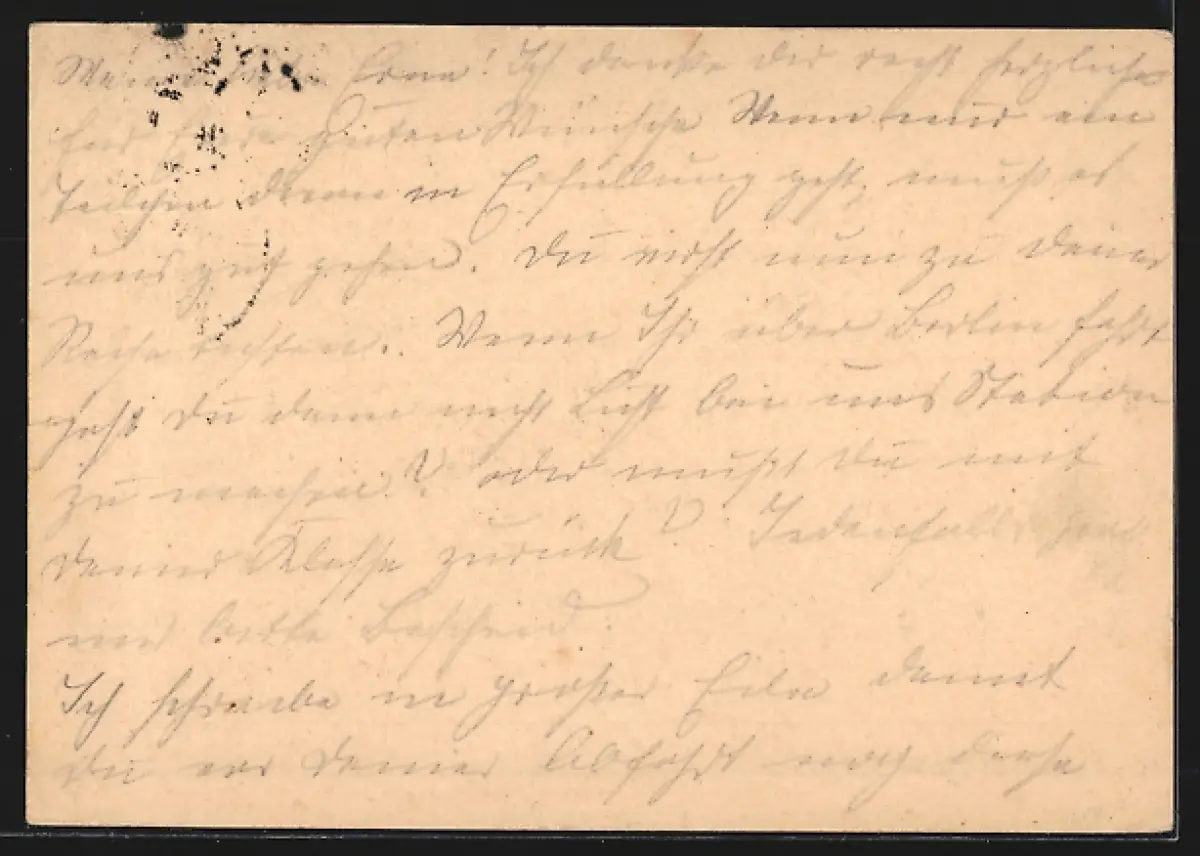 Meine liebe Erna! Ich danke dir recht herzlich
für guten Wünsche Wenn nur ein
Teilchen davon in Erfüllung geht, muß es
uns gut gehen. Du nun zu deiner
Reise Wenn Ihr über Berlin fahrt
hast du dann nicht Lust bei uns Station
zu machen? oder mußt du mit
deiner Klasse zurück? Jedenfalls
mir bitte Bescheid.
Ich schreibe in großer Eile damit
du vor deiner Abfahrt noch diese